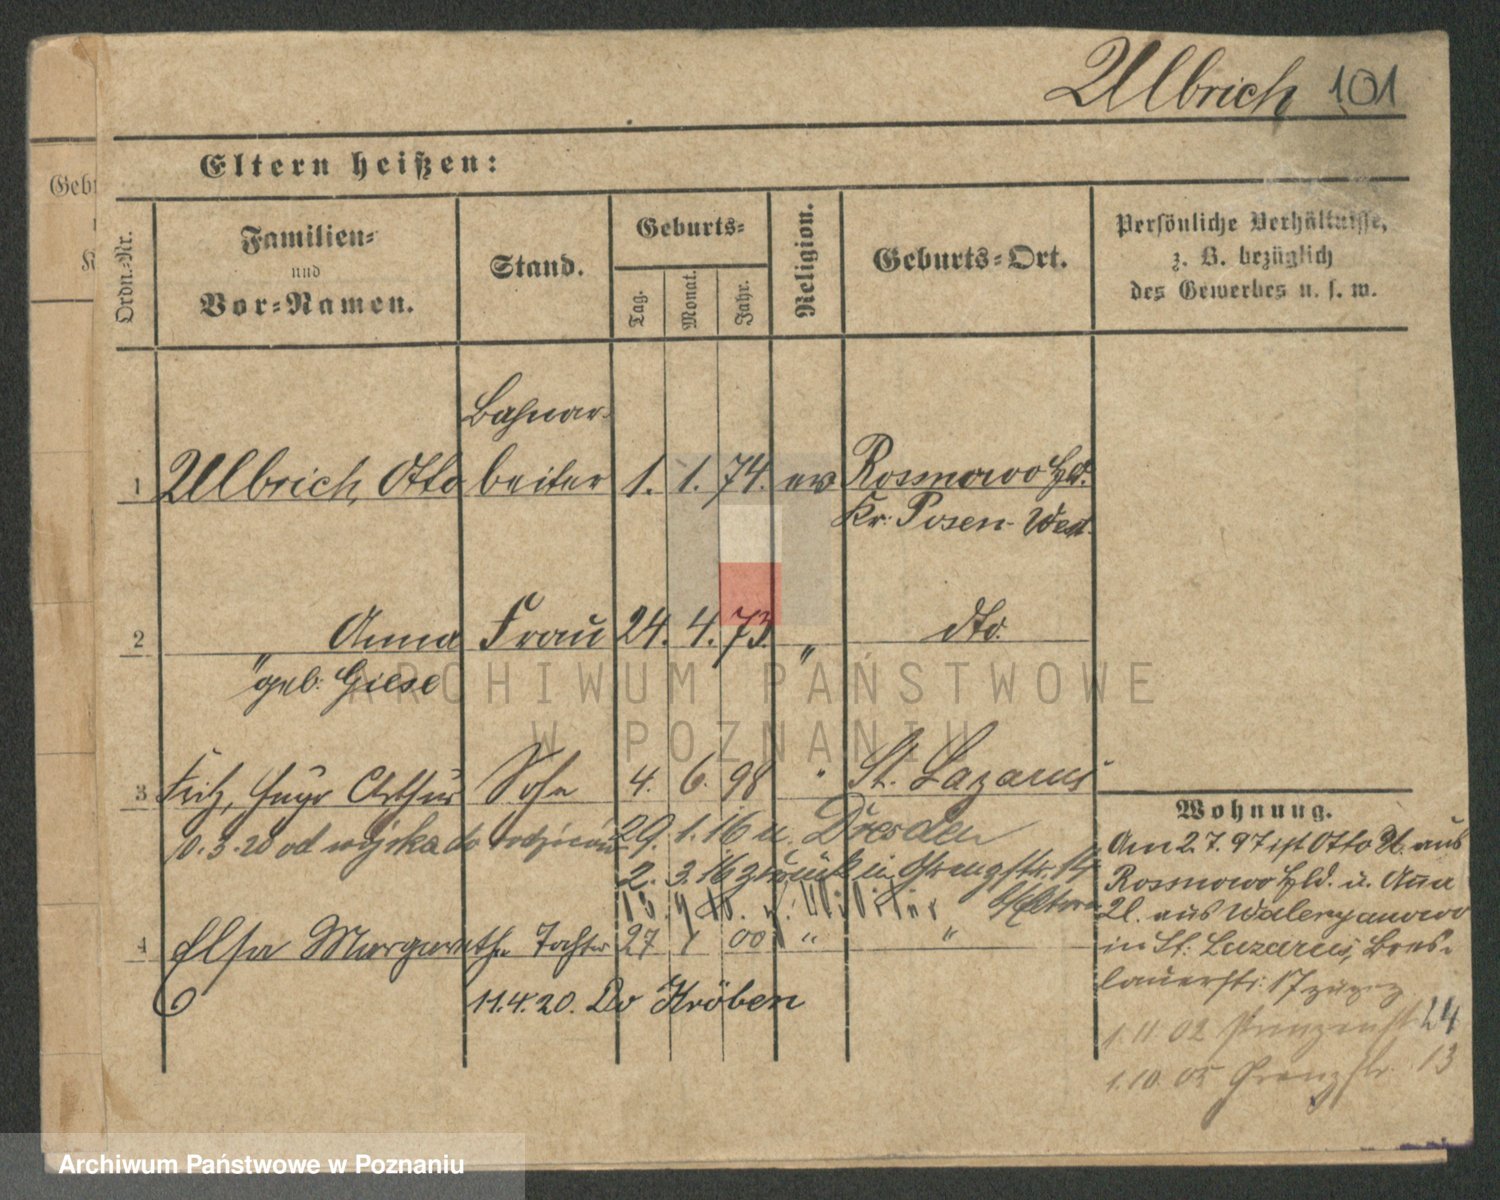 Ulbrich 101
Eltern heißen:
Ordn.-Nr.
Familien-
und
Vor-Namen.
Stand.
Geburts-
Tag.
Monat.
Jahr.
Religion.
Geburts-Ort.
Persönliche Verhältnisse,
z. B. bezüglich
des Gewerbes u. s. w.
Bahnar-
1 Ulbrich, Otto beiter 1. 1. 74. ev Rosnowo Hld.
Kr. Posen-West.
2 " Anna Frau 24. 4. 73. " dto.
geb. Giese
3 Fritz, Hugo Arthur Sohn 4. 6. 98 " St. Lazarus
Wohnung.
.3.20 od wojska do 29. 1. 16 n. Dresden
2. 3. 16 zurück in Grenzstr. 14
z. Militär b/Eltern
4 Elsa Margarethe Tochter 27 1 00 " "
11.4.20. Do Kröben
Am 2.7.97 ist Otto U. aus
Rosnowo Hld. u. Anna
U. aus Waleryanowo
in St. Lazarus, Bres-
lauerstr. 17 zugez
1.11 02 Prinzenst 24
1.10.05 Grenzstr. 13
Geb
K
ARCHIWUM PAŃSTWOWE
W POZNANIU
Archiwum Państwowe w Poznaniu